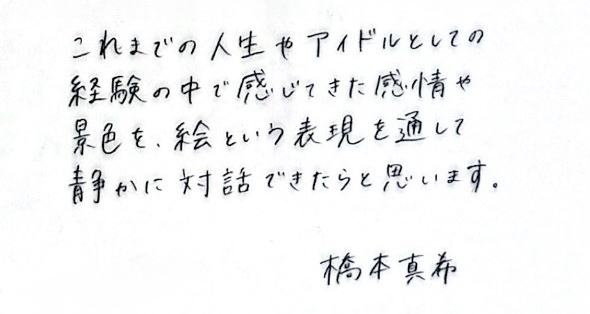 これまでの人生やアイドルとしての
経験の中で感じてきた感情や
景色を、絵という表現を通して
静かに対話できたらと思います。
橋本真希